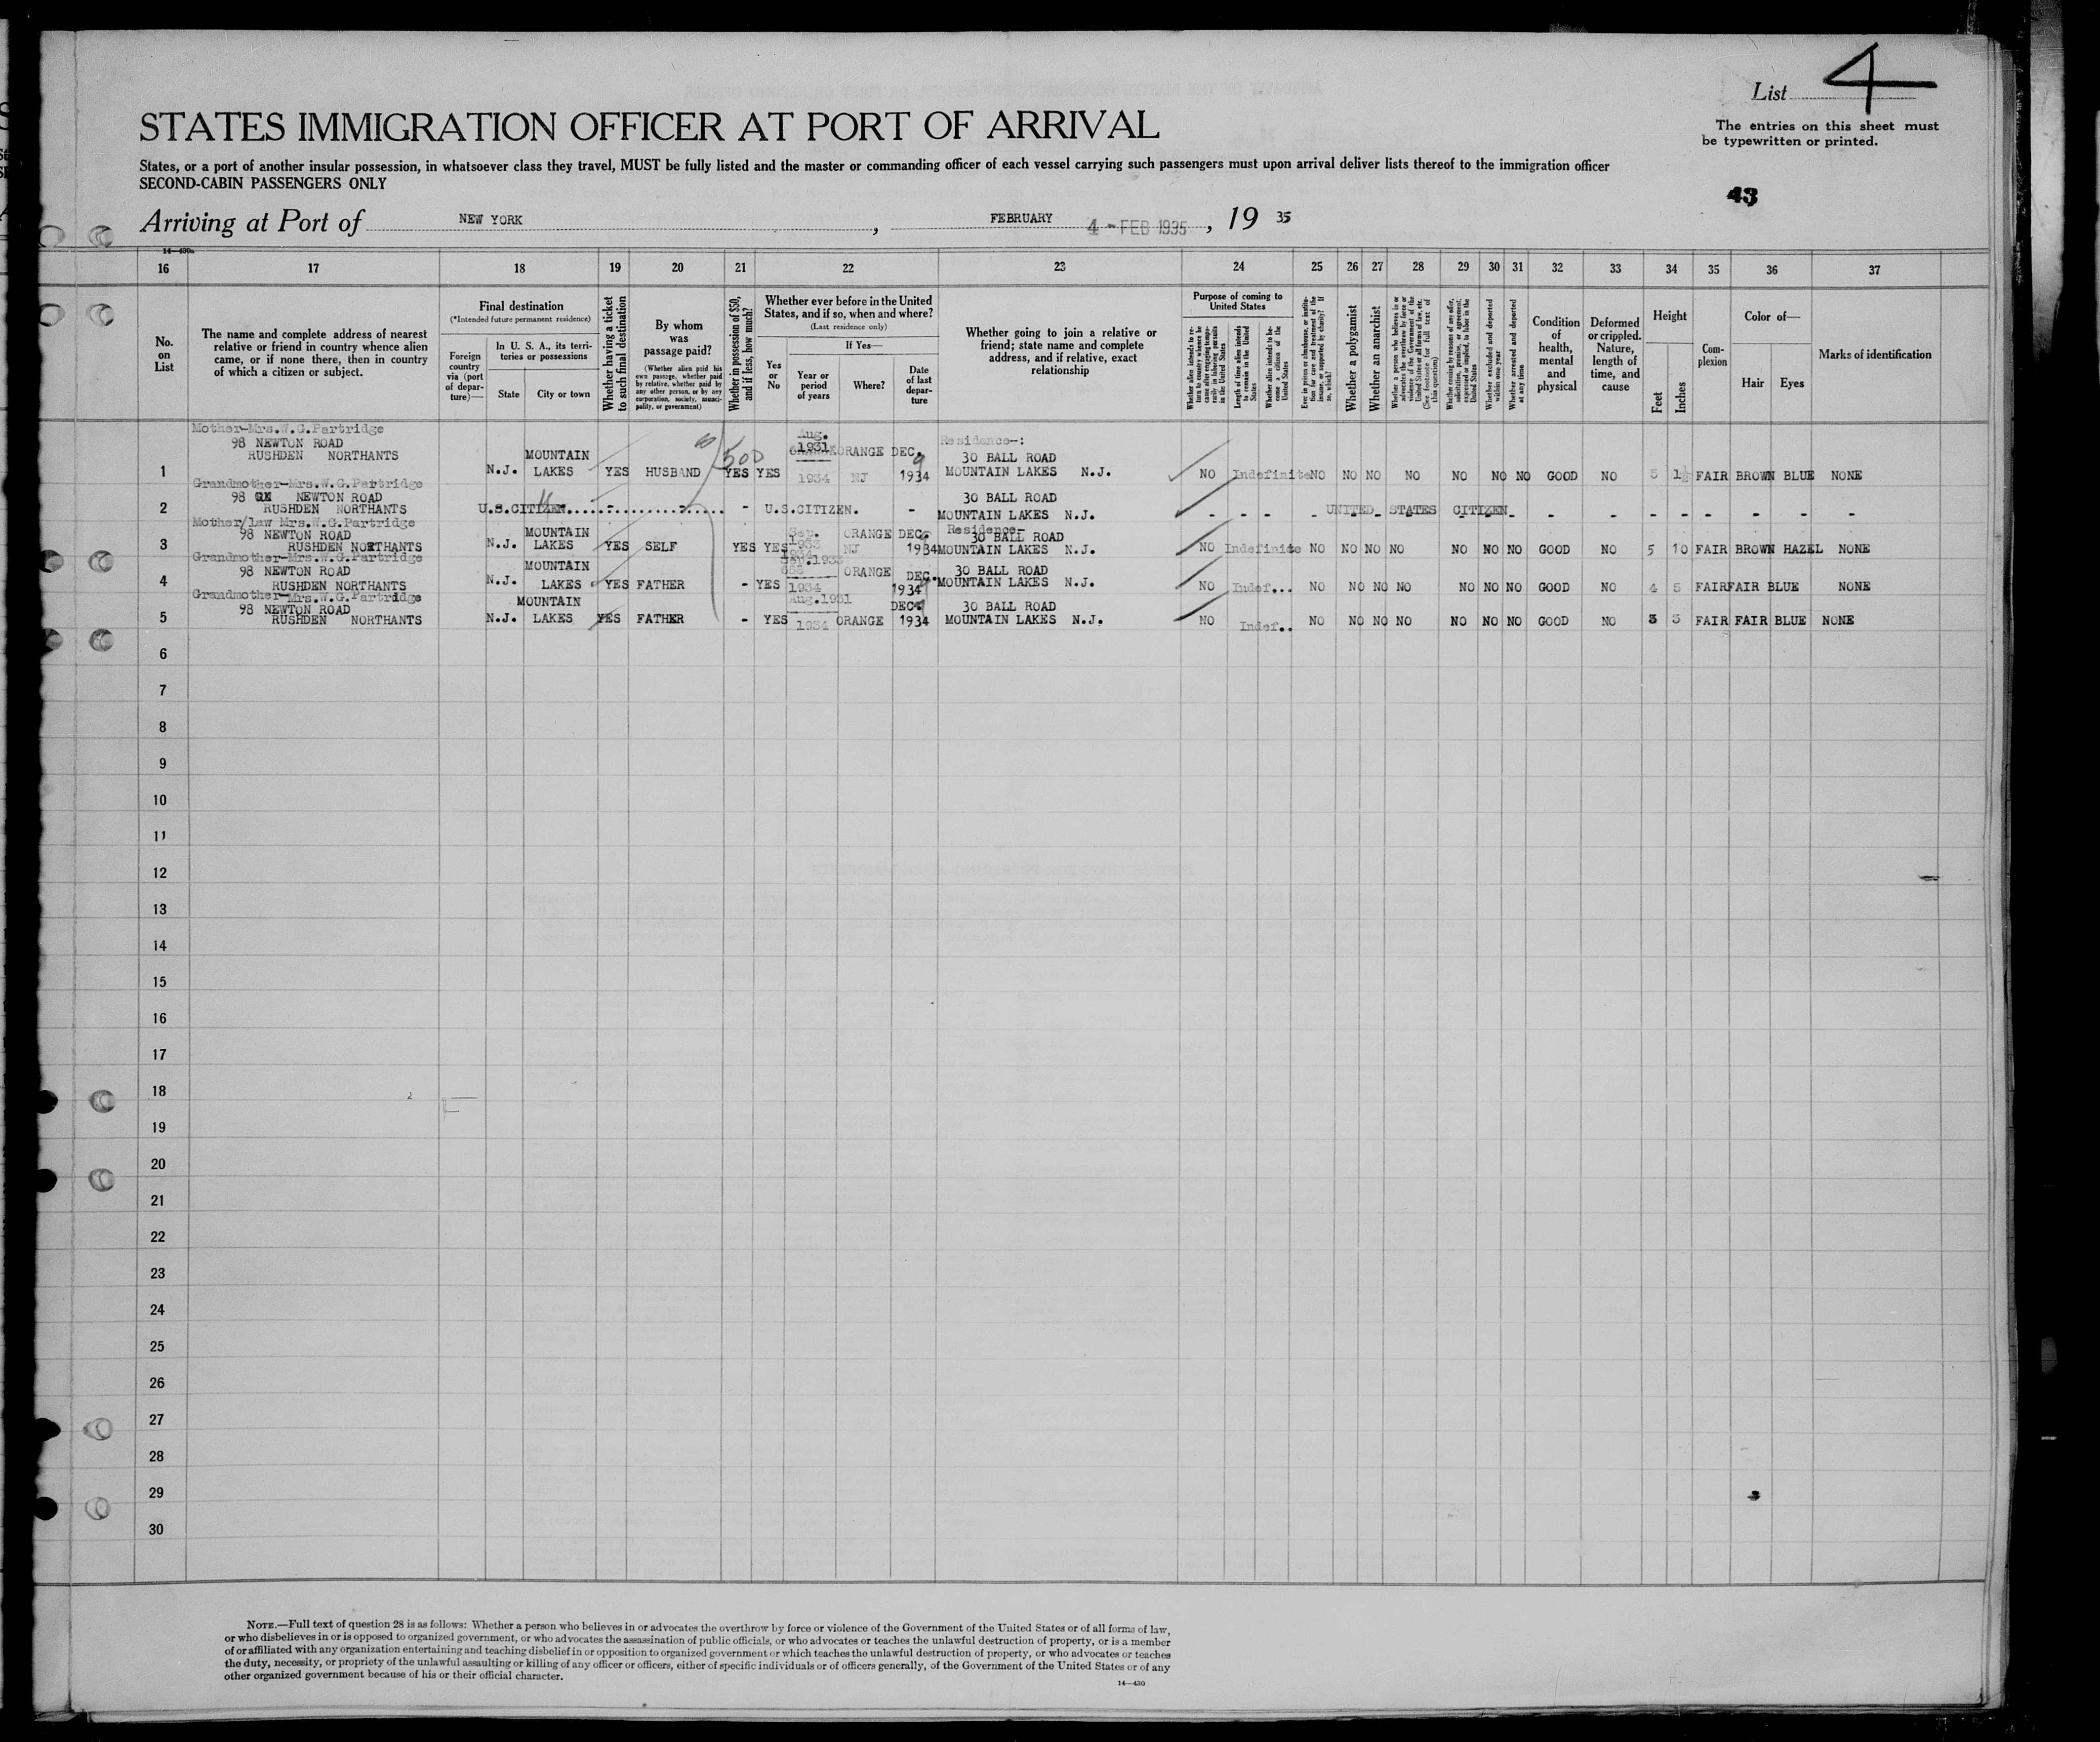 List 4
The entries on this sheet must
be typewritten or printed.
STATES IMMIGRATION OFFICER AT PORT OF ARRIVAL
States, or a port of another insular possession, in whatsoever class they travel, MUST be fully listed and the master or commanding officer of each vessel carrying such passengers must upon arrival deliver lists thereof to the immigration officer
SECOND-CABIN PASSENGERS ONLY
43
Arriving at Port of NEW YORK, FEBRUARY 4 - FEB 1935, 19 35
16 17 18 19 20 21 22 23 24 25 26 27 28 29 30 31 32 33 34 35 36 37
No.
on
List
The name and complete address of nearest
relative or friend in country whence alien
came, or if none there, then in country
of which a citizen or subject.
Final destination
(*Intended future permanent residence)
Foreign
country
via (port
of depar-
ture)—
In U. S. A., its terri-
tories or possessions
State
City or town
Whether having a ticket
to such final destination
By whom
was
passage paid?
(Whether alien paid his
own passage, whether paid
by relative, whether paid by
any other person, or by any
corporation, society, munici-
pality, or government)
Whether in possession of $50,
and if less, how much?
Whether ever before in the United
States, and if so, when and where?
(Last residence only)
Yes
or
No
If Yes—
Year or
period
of years
Where?
Date
of last
depar-
ture
Whether going to join a relative or
friend; state name and complete
address, and if relative, exact
relationship
Purpose of coming to
United States
Whether alien intends to re-
turn to country whence he
came after engaging tempo-
rarily in laboring pursuits
in the United States
Length of time alien intends
to remain in the United
States
Whether alien intends to be-
come a citizen of the
United States
Ever in prison or almshouse, or institu-
tion for care and treatment of the
insane, or supported by charity? If
so, which?
Whether a polygamist
Whether an anarchist
Whether a person who believes in or
advocates the overthrow by force or
violence of the Government of the
United States or all forms of law, etc.
(See footnote for full text of
this question)
Whether coming by reasons of any offer,
solicitation, promise, or agreement,
expressed or implied, to labor in the
United States
Whether excluded and deported
within one year
Whether arrested and deported
at any time
Condition
of
health,
mental
and
physical
Deformed
or crippled.
Nature,
length of
time, and
cause
Height
Feet
Inches
Com-
plexion
Color of—
Hair
Eyes
Marks of identification
Mother-Mrs.W.G.Partridge
98 NEWTON ROAD
RUSHDEN NORTHANTS
1 N.J. MOUNTAIN LAKES YES HUSBAND YES 500 YES Aug. 1931 1934 ORANGE NJ DEC. 1934 Residence-: 30 BALL ROAD MOUNTAIN LAKES N.J. NO Indefinite NO NO NO NO NO NO NO GOOD NO 5 1½ FAIR BROWN BLUE NONE
Grandmother-Mrs.W.G.Partridge
98 NEWTON ROAD
RUSHDEN NORTHANTS
2 U.S.CITIZEN - - - U.S.CITIZEN. - 30 BALL ROAD MOUNTAIN LAKES N.J. - - - - UNITED STATES CITIZEN - - - - - - - -
Mother/law Mrs.W.G.Partridge
98 NEWTON ROAD
RUSHDEN NORTHANTS
3 N.J. MOUNTAIN LAKES YES SELF YES YES Sep. 1933 1934 ORANGE NJ DEC. 1934 Residence- 30 BALL ROAD MOUNTAIN LAKES N.J. NO Indefinite NO NO NO NO NO NO NO GOOD NO 5 10 FAIR BROWN HAZEL NONE
Grandmother-Mrs.W.G.Partridge
98 NEWTON ROAD
RUSHDEN NORTHANTS
4 N.J. MOUNTAIN LAKES YES FATHER - YES 1934 ORANGE DEC. 1934 30 BALL ROAD MOUNTAIN LAKES N.J. NO Indef... NO NO NO NO NO NO NO GOOD NO 4 5 FAIR FAIR BLUE NONE
Grandmother-Mrs.W.G.Partridge
98 NEWTON ROAD
RUSHDEN NORTHANTS
5 N.J. MOUNTAIN LAKES YES FATHER - YES Aug.1931 1934 ORANGE DEC. 1934 30 BALL ROAD MOUNTAIN LAKES N.J. NO Indef.. NO NO NO NO NO NO NO GOOD NO 3 3 FAIR FAIR BLUE NONE
6
7
8
9
10
11
12
13
14
15
16
17
18
19
20
21
22
23
24
25
26
27
28
29
30
NOTE.—Full text of question 28 is as follows: Whether a person who believes in or advocates the overthrow by force or violence of the Government of the United States or of all forms of law,
or who disbelieves in or is opposed to organized government, or who advocates the assassination of public officials, or who advocates or teaches the unlawful destruction of property, or is a member
of or affiliated with any organization entertaining and teaching disbelief in or opposition to organized government or which teaches the unlawful destruction of property, or who advocates or teaches
the duty, necessity, or propriety of the unlawful assaulting or killing of any officer or officers, either of specific individuals or of officers generally, of the Government of the United States or of any
other organized government because of his or their official character.
14—430